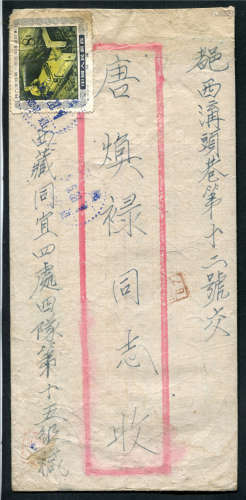 西溝頭巷第十二號交
唐煥禄同志收
西藏同宜四處四隊第十五組緘
8